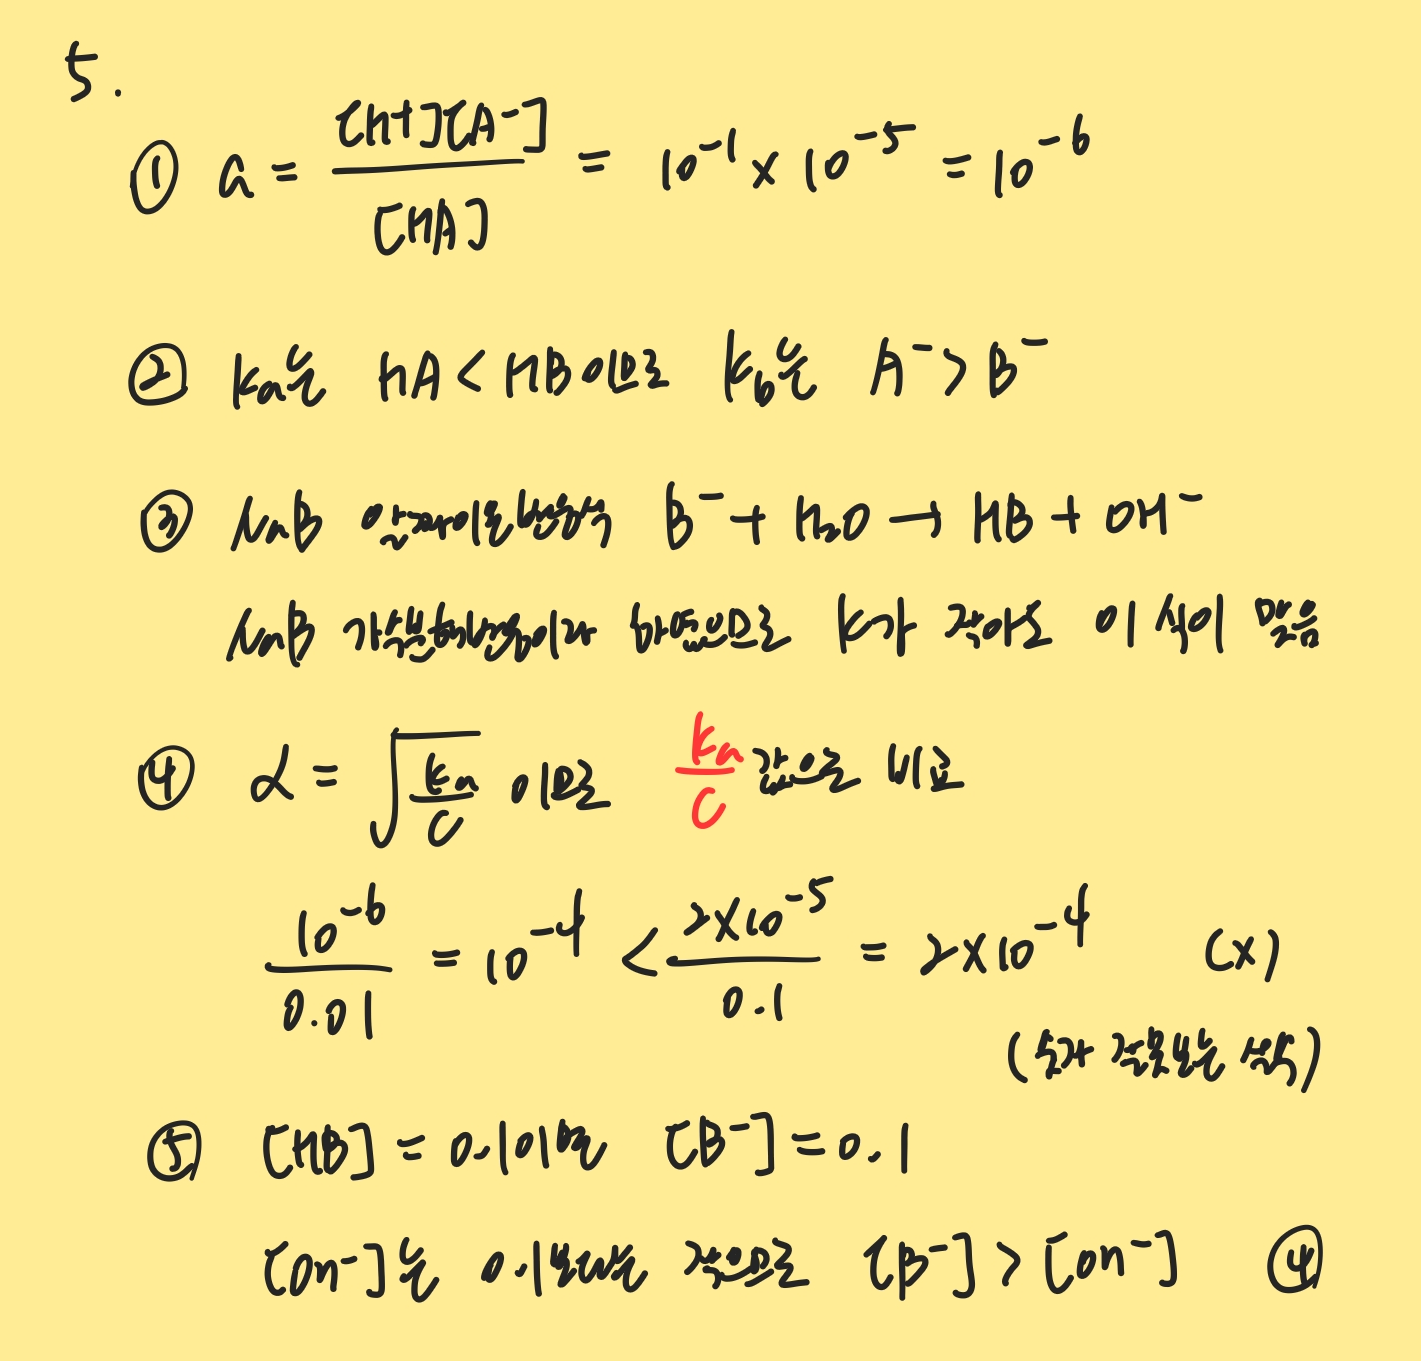 5.
① a = [H+][A-] / [HA] = 10^-1 × 10^-5 = 10^-6
② Ka는 HA < HB이므로 Kb는 A^- > B^-
③ NaB 알짜이온반응식 B^- + H2O → HB + OH^-
NaB 가수분해반응이라 하였으므로 K가 작아도 이 식이 맞음
④ α = √(Ka/C) 이므로 Ka/C 값으로 비교
10^-6 / 0.01 = 10^-4 < 2×10^-5 / 0.1 = 2×10^-4 (×)
(숫자 잘못보는 실수)
⑤ [HB] = 0.1이면 [B^-] = 0.1
[OH^-]는 0.1보다는 작으므로 [B^-] > [OH^-] ④